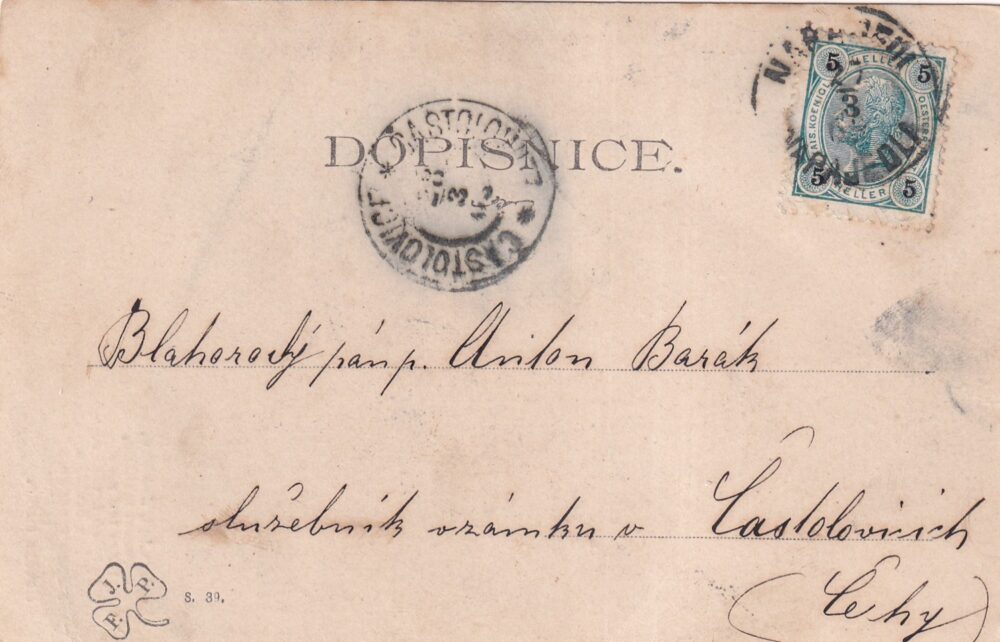 DOPISNICE.
CASTOLOVICE
5 5
5 5
HELLER
Blahorodý pán p. Anton Barák
služebník vzámku v Častolovicich
(Čechy)
J. P. P.
S. 39.